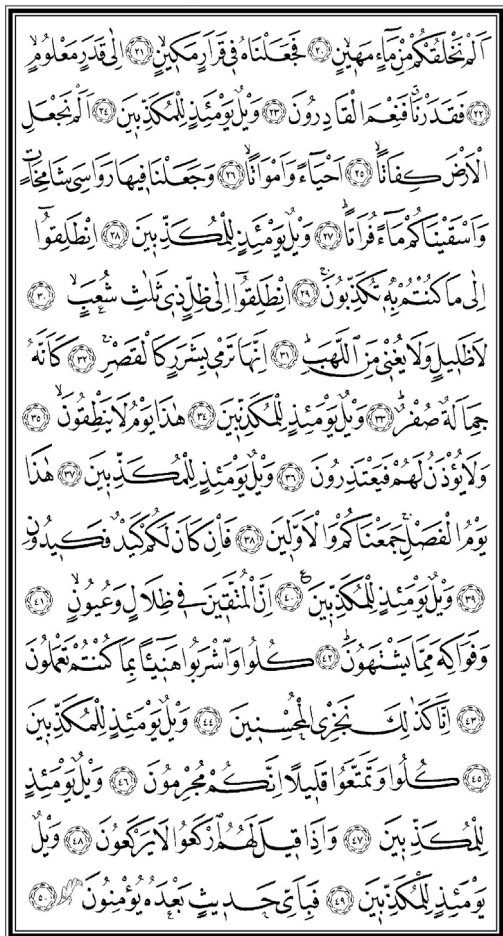 اَلَمْ نَخْلُقْكُمْ مِنْ مَٓاءٍ مَهٖينٍۙ ﴿٢٠﴾ فَجَعَلْنَاهُ فٖي قَرَارٍ مَكٖينٍۙ ﴿٢١﴾ اِلٰى قَدَرٍ مَعْلُومٍۙ
﴿٢٢﴾ فَقَدَرْنَاۗ فَنِعْمَ الْقَادِرُونَ ﴿٢٣﴾ وَيْلٌ يَوْمَئِذٍ لِلْمُكَذِّبٖينَ ﴿٢٤﴾ اَلَمْ نَجْعَلِ
الْاَرْضَ كِفَاتاًۙ ﴿٢٥﴾ اَحْيَٓاءً وَاَمْوَاتاًۙ ﴿٢٦﴾ وَجَعَلْنَا فٖيهَا رَوَاسِيَ شَامِخَاتٍ
وَاَسْقَيْنَاكُمْ مَٓاءً فُرَاتاًۜ ﴿٢٧﴾ وَيْلٌ يَوْمَئِذٍ لِلْمُكَذِّبٖينَ ﴿٢٨﴾ اِنْطَلِقُٓوا
اِلٰى مَا كُنْتُمْ بِهٖ تُكَذِّبُونَۚ ﴿٢٩﴾ اِنْطَلِقُٓوا اِلٰى ظِلٍّ ذٖي ثَلٰثِ شُعَبٍۙ ﴿٣٠﴾
لَا ظَلٖيلٍ وَلَا يُغْنٖي مِنَ اللَّهَبِۜ ﴿٣١﴾ اِنَّهَا تَرْمٖي بِشَرَرٍ كَالْقَصْرِۚ ﴿٣٢﴾ كَاَنَّهُ
جِمَالَةٌ صُفْرٌۜ ﴿٣٣﴾ وَيْلٌ يَوْمَئِذٍ لِلْمُكَذِّبٖينَ ﴿٣٤﴾ هٰذَا يَوْمُ لَا يَنْطِقُونَۙ ﴿٣٥﴾
وَلَا يُؤْذَنُ لَهُمْ فَيَعْتَذِرُونَ ﴿٣٦﴾ وَيْلٌ يَوْمَئِذٍ لِلْمُكَذِّبٖينَ ﴿٣٧﴾ هٰذَا
يَوْمُ الْفَصْلِۚ جَمَعْنَاكُمْ وَالْاَوَّلٖينَ ﴿٣٨﴾ فَاِنْ كَانَ لَكُمْ كَيْدٌ فَكٖيدُونِ
﴿٣٩﴾ وَيْلٌ يَوْمَئِذٍ لِلْمُكَذِّبٖينَ ﴿٤٠﴾ اِنَّ الْمُتَّقٖينَ فٖي ظِلَالٍ وَعُيُونٍۙ ﴿٤١﴾
وَفَوَاكِهَ مِمَّا يَشْتَهُونَۜ ﴿٤٢﴾ كُلُوا وَاشْرَبُوا هَنٖٓيـٔاً بِمَا كُنْتُمْ تَعْمَلُونَ
﴿٤٣﴾ اِنَّا كَذٰلِكَ نَجْزِي الْمُحْسِنٖينَ ﴿٤٤﴾ وَيْلٌ يَوْمَئِذٍ لِلْمُكَذِّبٖينَ
﴿٤٥﴾ كُلُوا وَتَمَتَّعُوا قَلٖيلاً اِنَّكُمْ مُجْرِمُونَ ﴿٤٦﴾ وَيْلٌ يَوْمَئِذٍ
لِلْمُكَذِّبٖينَ ﴿٤٧﴾ وَاِذَا قٖيلَ لَهُمُ ارْكَعُوا لَا يَرْكَعُونَ ﴿٤٨﴾ وَيْلٌ
يَوْمَئِذٍ لِلْمُكَذِّبٖينَ ﴿٤٩﴾ فَبِاَيِّ حَدٖيثٍ بَعْدَهُ يُؤْمِنُونَ ﴿٥٠﴾